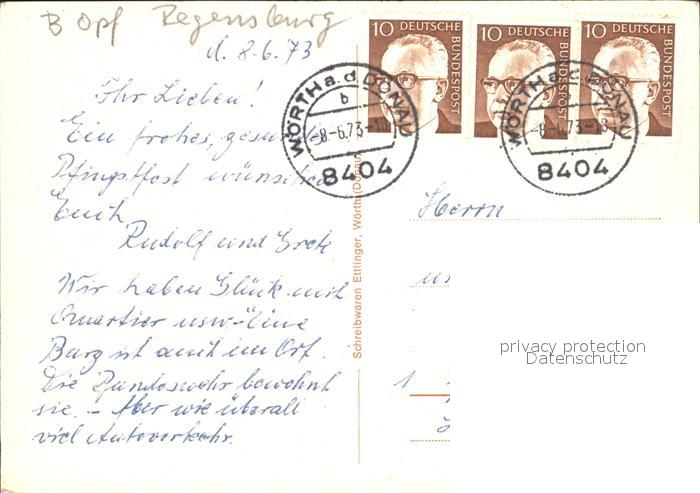 B Opf Regensburg
d. 8.6.73
Ihr Lieben!
Ein frohes, gesundes
Pfingstfest wünschen
Euch
Rudolf und Grete
Wir haben Glück mit
Quartier usw. Eine
Burg ist auch im Ort.
Die Bundeswehr bewohnt
sie. – Aber wie überall
viel Autoverkehr.
Schreibwaren Ettlinger, Wörth (Donau)
10 DEUTSCHE BUNDESPOST
10 DEUTSCHE BUNDESPOST
10 DEUTSCHE BUNDESPOST
WÖRTH a. d. DONAU
b
-8-6.73-18
8404
WÖRTH a. d. DONAU
-8-6.73-18
8404
Herrn
privacy protection
Datenschutz